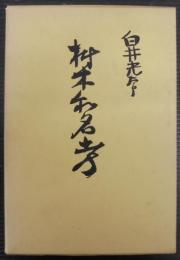 白井光太郎
樹木和名考